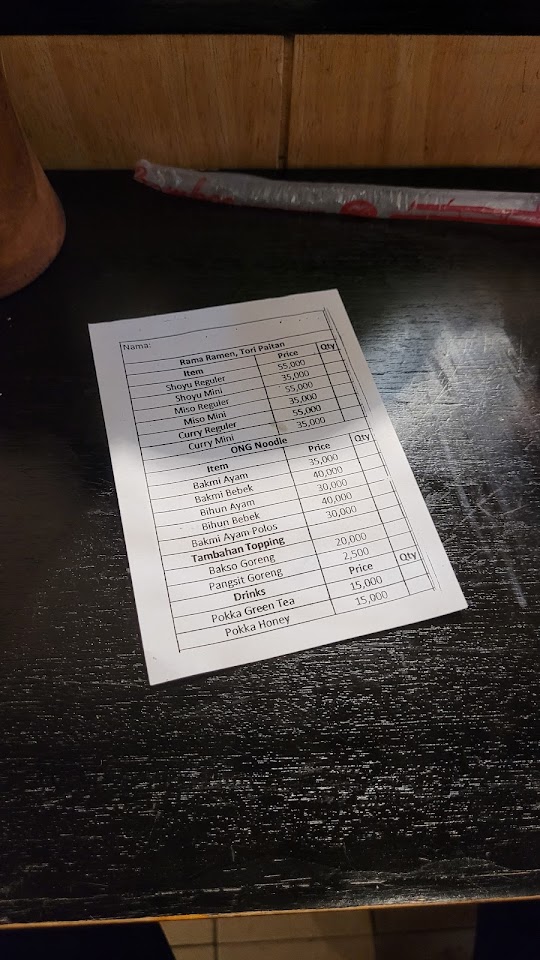 Nama:
Rama Ramen, Tori Paitan
Item Price Qty
Shoyu Reguler 55,000
Shoyu Mini 35,000
Miso Reguler 55,000
Miso Mini 35,000
Curry Reguler 55,000
Curry Mini 35,000
ONG Noodle
Item Price Qty
Bakmi Ayam 35,000
Bakmi Bebek 40,000
Bihun Ayam 30,000
Bihun Bebek 40,000
Bakmi Ayam Polos 30,000
Tambahan Topping
Bakso Goreng 20,000
Pangsit Goreng 2,500
Drinks Price Qty
Pokka Green Tea 15,000
Pokka Honey 15,000